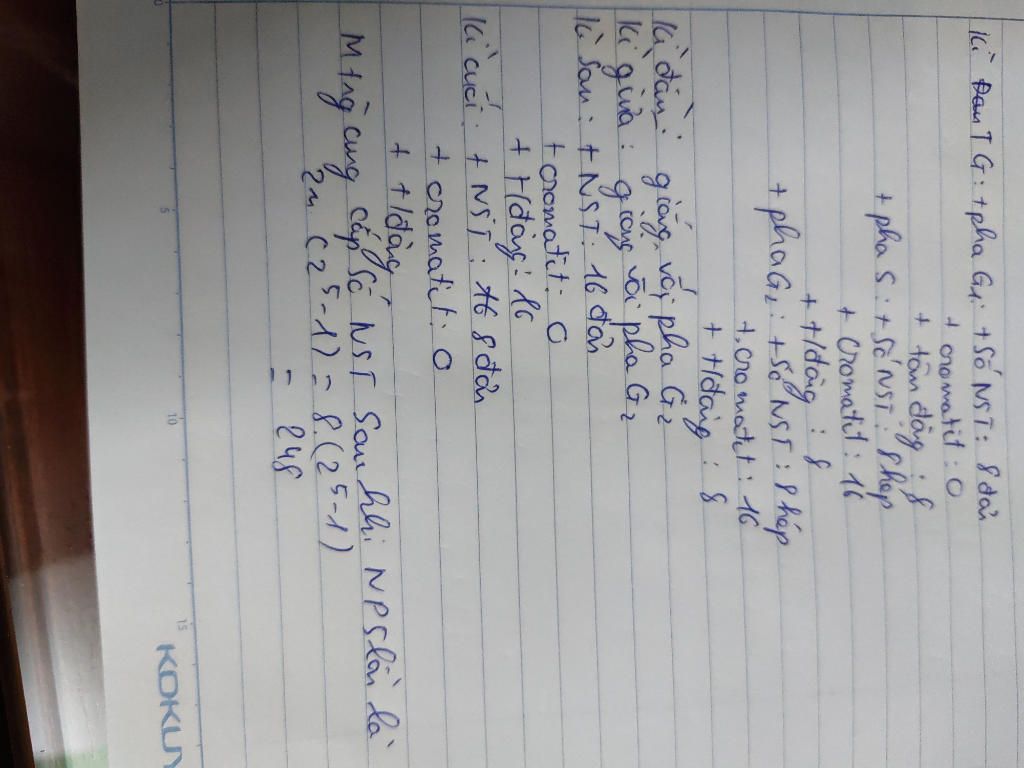 Kì Đầu T G : + pha G₁ : + Số NST : 8 đơn
+ cromatit : 0
+ tâm động : 8
+ pha S : + Số NST : 8 kép
+ Cromatit : 16
+ t/động : 8
+ pha G₂ : + Số NST : 8 kép
+ cromatit : 16
+ t/động : 8
Kì đầu : giống với pha G₂
Kì giữa : giống với pha G₂
Kì Sau : + NST : 16 đơn
+ cromatit : 0
+ t/động : 16
Kì cuối : + NST : 8 đơn
+ cromatit : 0
+ t/động
M trg cung cấp số NST sau khi NP 5 lần là
2n (2⁵-1) = 8.(2⁵-1)
= 248
5
10
15
KOKUY